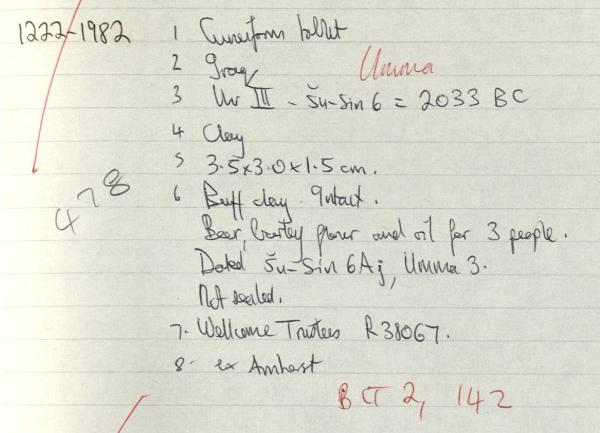 1222-1982 1 Cuneiform tablet
2 Iraq Umma
3 Ur III - Šu-Sin 6 = 2033 BC
4 Clay
5 3.5x3.0x1.5 cm.
478
6 Buff clay. Intact.
Beer, barley flour and oil for 3 people.
Dated Šu-Sin 6Aj, Umma 3.
Not sealed.
7. Wellcome Trustees R38067.
8. ex Amherst
BCT 2, 142